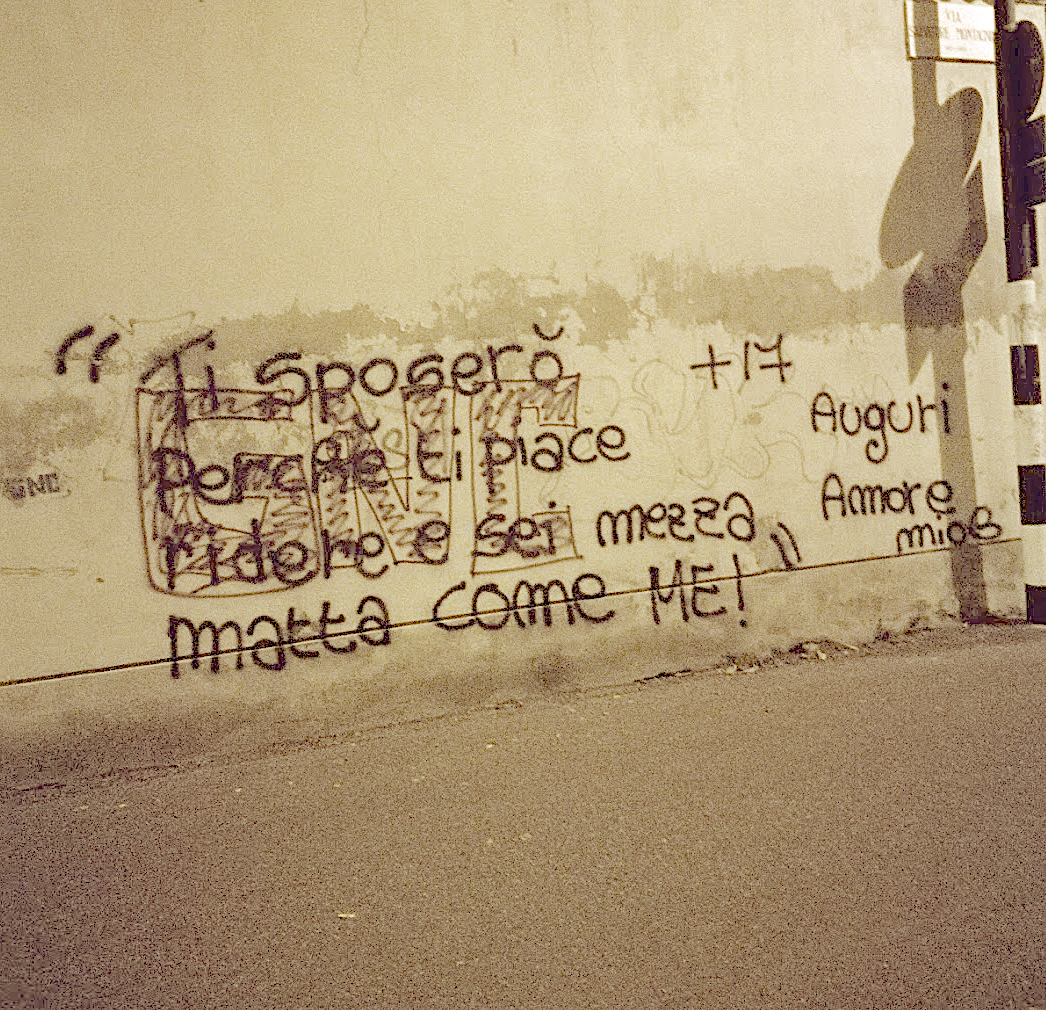 VIA
"Ti sposerò
+17
perchè ti piace
ridere e sei mezza
matta come ME!"
Auguri
Amore
mio
ENE